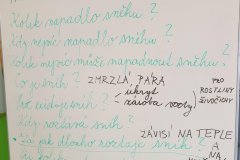 Kolik napadlo sněhu?
Kdy nejvíc napadlo sněhu?
Kolik nejvíc může napadnout sněhu?
Co je sníh? ZMRZLÁ PÁRA
úkryt
zásoba vody
PRO ROSTLINY
ŽIVOČICHY
Kdy roztává sníh?
ZÁVISÍ NA TEPLE
A
NA
Za jak dlouho roztaje sníh?